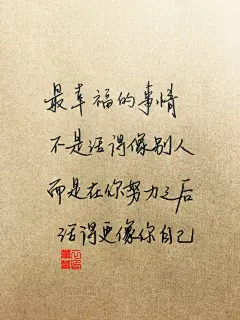 最幸福的事情
不是活得像别人
而是在你努力之后
活得更像你自己